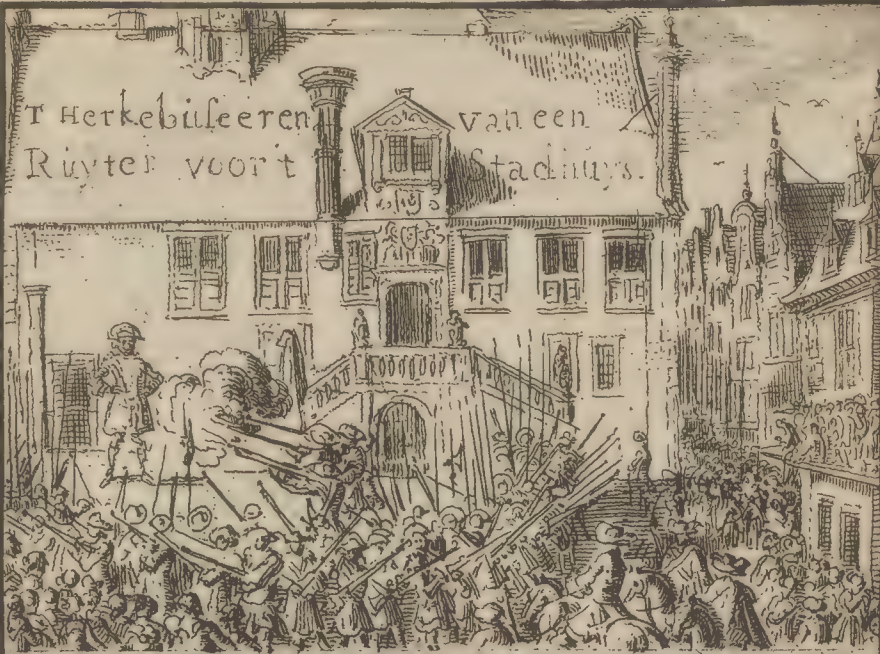 T Herkebuſeeren van een
Ruyter voor't Stadhuys.